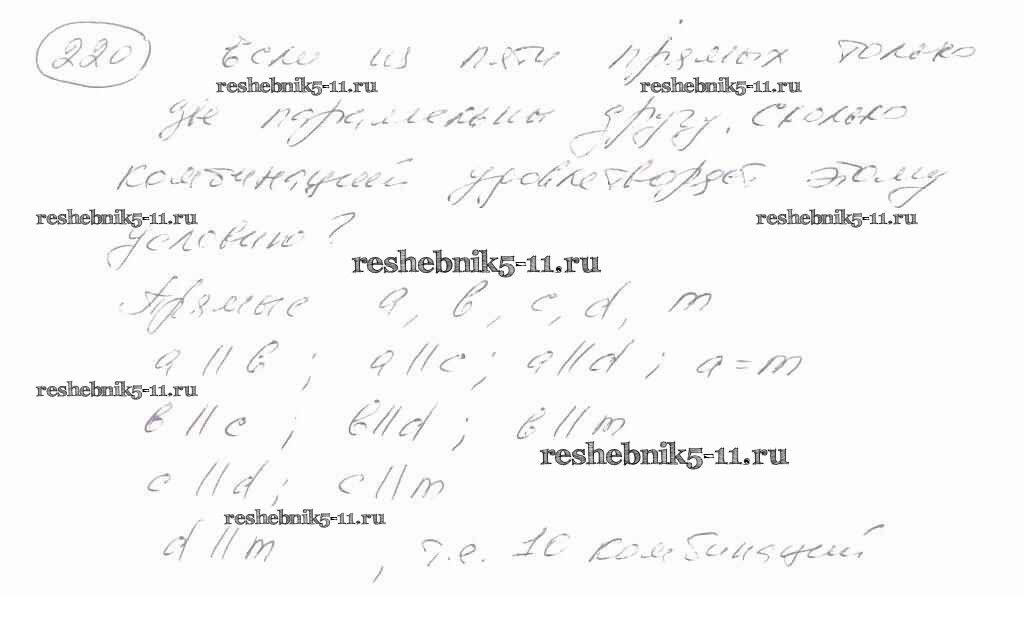 220 Если из пяти прямых только
reshebnik5-11.ru reshebnik5-11.ru
две параллельны другу. Сколько
комбинаций удовлетворяет этому
reshebnik5-11.ru reshebnik5-11.ru
условию?
reshebnik5-11.ru
Прямые a, b, c, d, m
a || b ; a || c ; a || d ; a = m
reshebnik5-11.ru
b || c ; b || d ; b || m
reshebnik5-11.ru
c || d ; c || m
reshebnik5-11.ru
d || m , т.е. 10 комбинаций